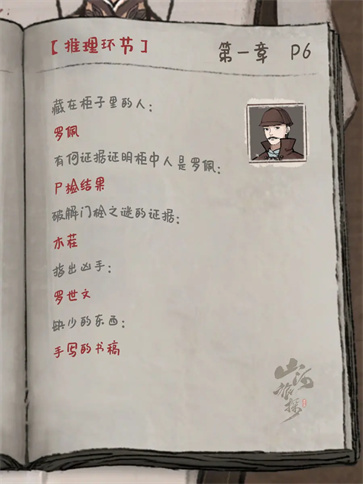 【推理环节】
第一章 P6
藏在柜子里的人：
罗佩
有何证据证明柜中人是罗佩：
尸捡结果
破解门栓之谜的证据：
木茬
指出凶手：
罗世文
缺少的东西：
手写的书稿
山河旅探